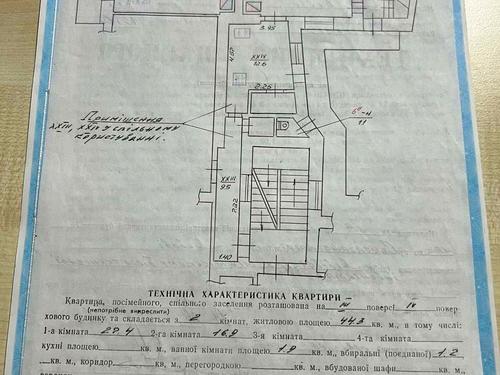 3.95
4.67
XXIV
12.6
2.25
6а-н
1.1
Приміщення
XXIII, XXIV у спільному
користуванні.
XXIII
9.5
7.22
1.40
ТЕХНІЧНА ХАРАКТЕРИСТИКА КВАРТИРИ
Квартира, посімейного, спільного заселення розташована на III поверсі IV повер
(непотрібне викреслити)
хового будинку та складається з 2 кімнат, житловою площею 44.3 кв. м., в тому числі:
1-а кімната 27.4 2-га кімната 16.9 3-я кімната 4-та кімната
кухні площею кв. м., ванної кімнати площею 1.9 кв. м., вбиральні (поєднаної) 1.2
кв. м., коридор кв. м., перегородкою кв. м., вбудованої шафи кв. м.,